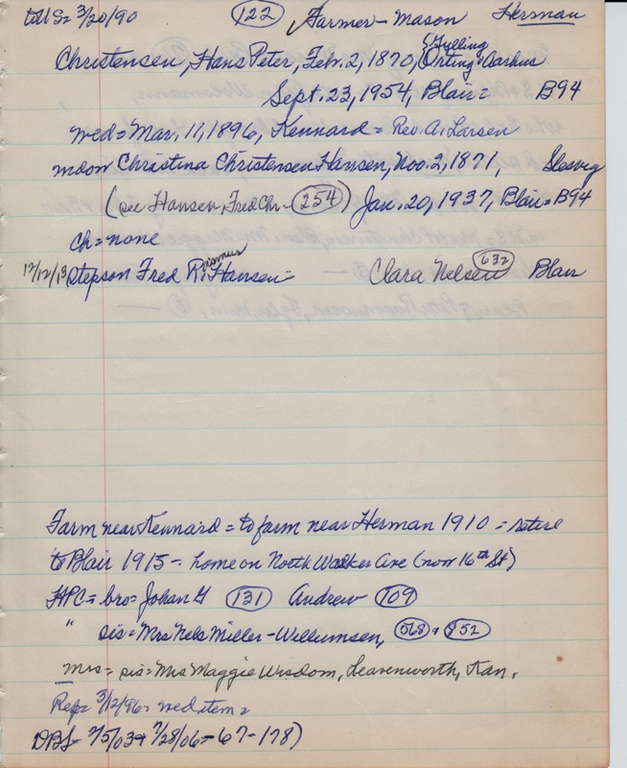 to US = 3/20/90 (122) ✓ Farmer - Mason Herman
Christensen, Hans Peter, Feb. 2, 1870, Orting = Aarhus
Sept. 23, 1954, Blair = B94
wed = Mar. 11, 1896, Kennard = Rev. A. Larsen
Christina Christensen Hansen, Nov. 2, 1871, Slesvig
(see Hansen, Fred Chr. - (254)) Jan. 20, 1937, Blair = B94
ch = none
12/12/13 Stepson Fred Rasmus Hansen = Clara Nelsen (632) Blair
Farm near Kennard = to farm near Herman 1910 = retire
to Blair 1915 - home on North Walker Ave (now 16th St)
HPC = bro = Johan G (131) Andrew (109)
" sis = Mrs Nels Miller - Willumsen, (568) + (852)
Mrs = sis = Mrs Maggie Wisdom, Leavenworth, Kan.
Rep = 3/12/96 = wed item =
DBS - 7/5/03 + 7/28/06 = 67 - 178)